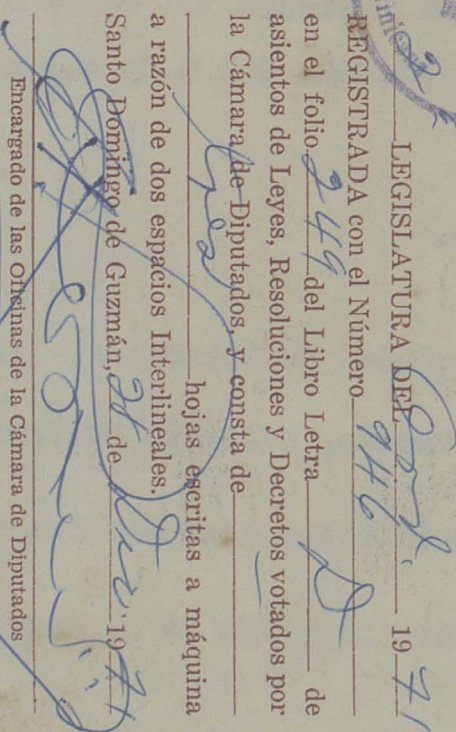 2ª LEGISLATURA DEL Ord. 1971
REGISTRADA con el Número 946
en el folio 249 del Libro Letra D de
asientos de Leyes, Resoluciones y Decretos votados por
la Cámara de Diputados, y consta de
hojas escritas a máquina
a razón de dos espacios Interlineales.
Santo Domingo de Guzmán, de Dic. 1971
Encargado de las Oficinas de la Cámara de Diputados